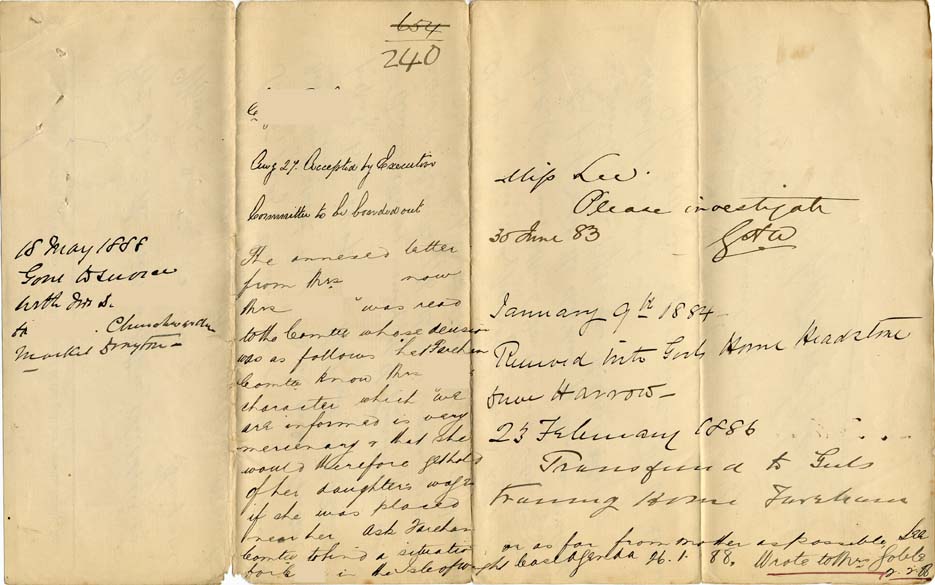 18 May 1888
Gone to service
with Mrs S.
Churchwarden
Market Drayton
654
240
Aug 27. Accepted by Executive
Committee to be boarded out
The annexed letter
from Mrs now
Mrs "was read
to the Comtee whose decision
was as follows "let Fareham
Comtee know Mrs "
character which "we
are informed is very
mercenary & that she
would therefore get hold
of her daughters wages
if she was placed
near her Ask Fareham
Comtee to find a situation
for in the Isle of Wight
or as far from mother as possible. See
Case Agenda 26.1.88. Wrote to Mrs
2.2.88
Miss Lee.
Please investigate
30 June 83
January 9th 1884
Received into Girls Home Headstone
Drive Harrow
23 February 1886
Transferred to Girls
Training Home Fareham